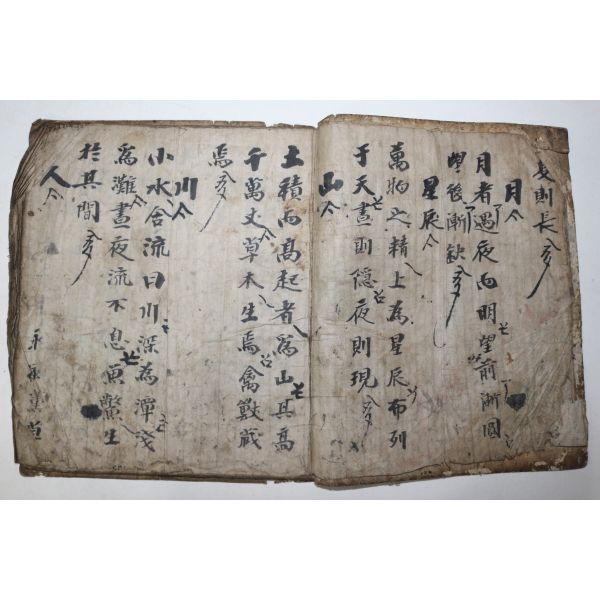 則長
月
月者遇夜而明望前漸圓
望後漸缺
星辰
萬物之精上為星辰布列
于天晝則隱夜則現
山
土積而高起者為山其高
千萬丈草木生焉禽獸藏
焉
川
小水舍流曰川深為潭淺
為灘晝夜流不息魚鱉生
於其間
人